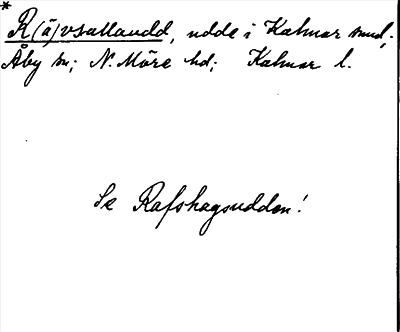 *
R(ä)vsallaudd, udde i Kalmar sund,
Åby sn; N. Möre hd; Kalmar l.
Se Rafshagsudden!